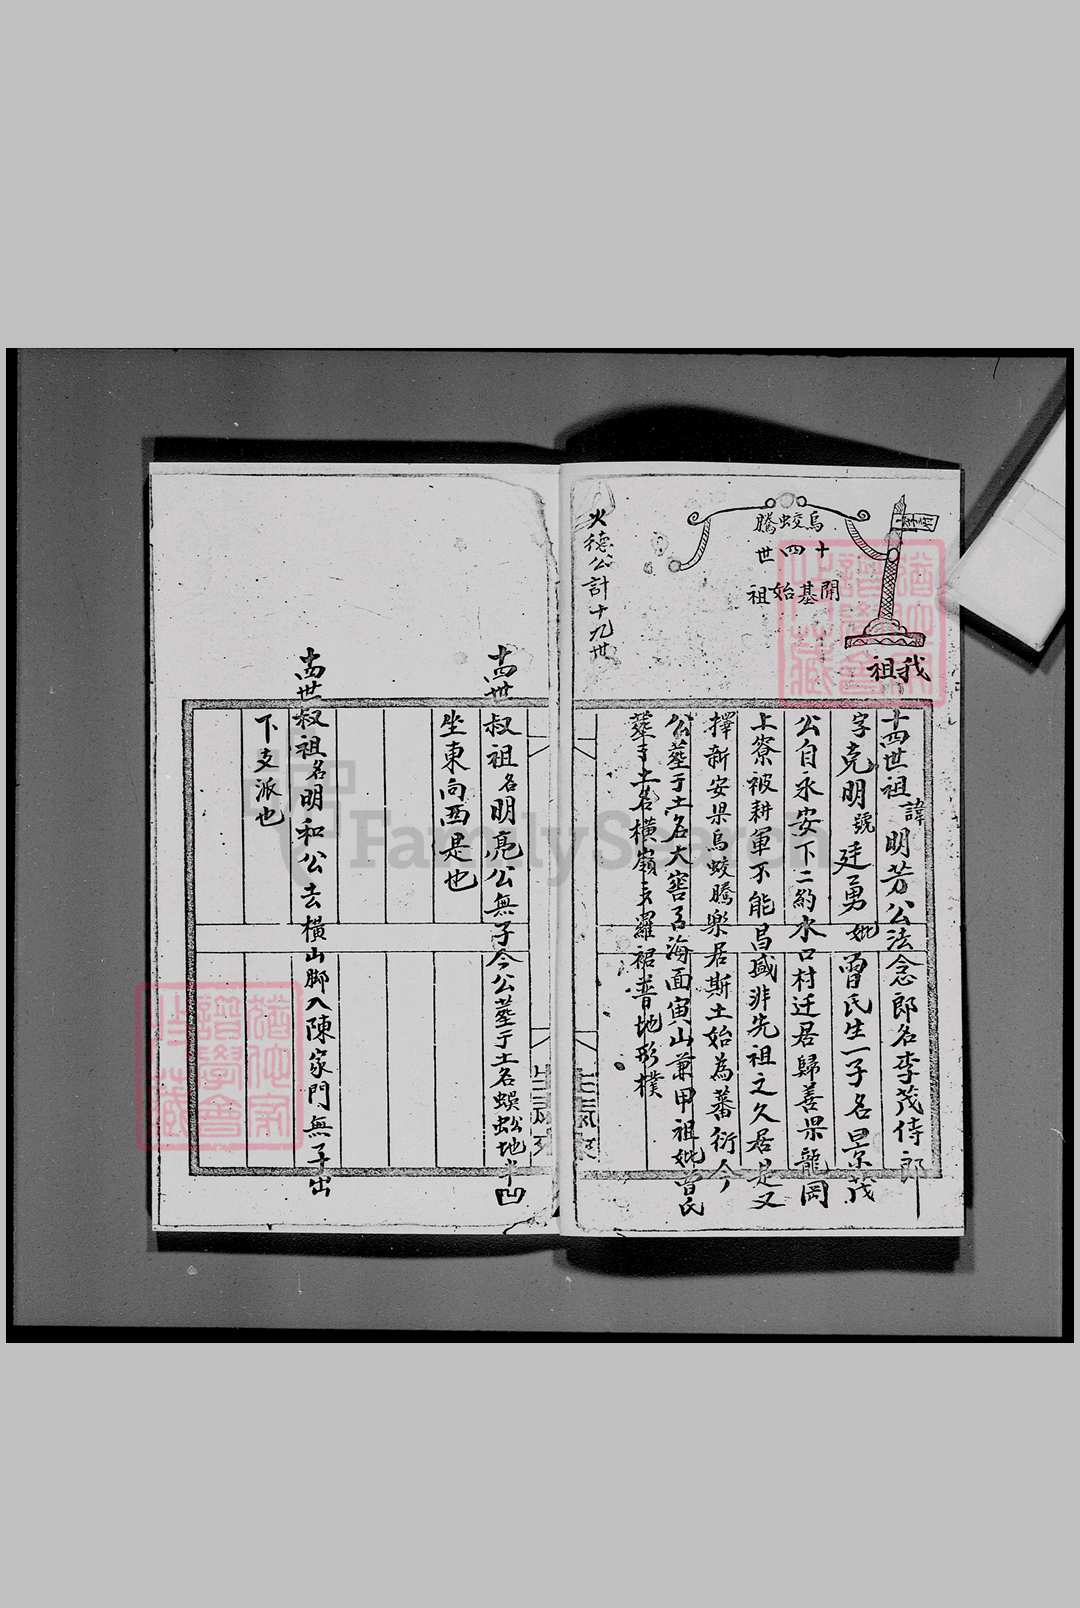 我祖
烏蛟騰
十四世
開基始祖
火德公計十九世
十四世祖諱明芳公法念郎名李茂侍郎
字克明號廷勇妣曾氏生一子名景茂
公自永安下二約水口村迁居歸善県龍岡
上寮被耕軍不能昌盛非先祖之久居是又
擇新安県烏蛟騰樂居斯土始為蕃衍今
公塟于土名大窖 海面寅山兼甲祖妣曾氏
塟于土名橫嶺 羅裙普地形樸
十四世叔祖名明亮公無子今公塟于土名蜈蚣地半凹
坐東向西是也
十四世叔祖名明和公去橫山脚入陳家門無子出
下支派也
FamilySearch